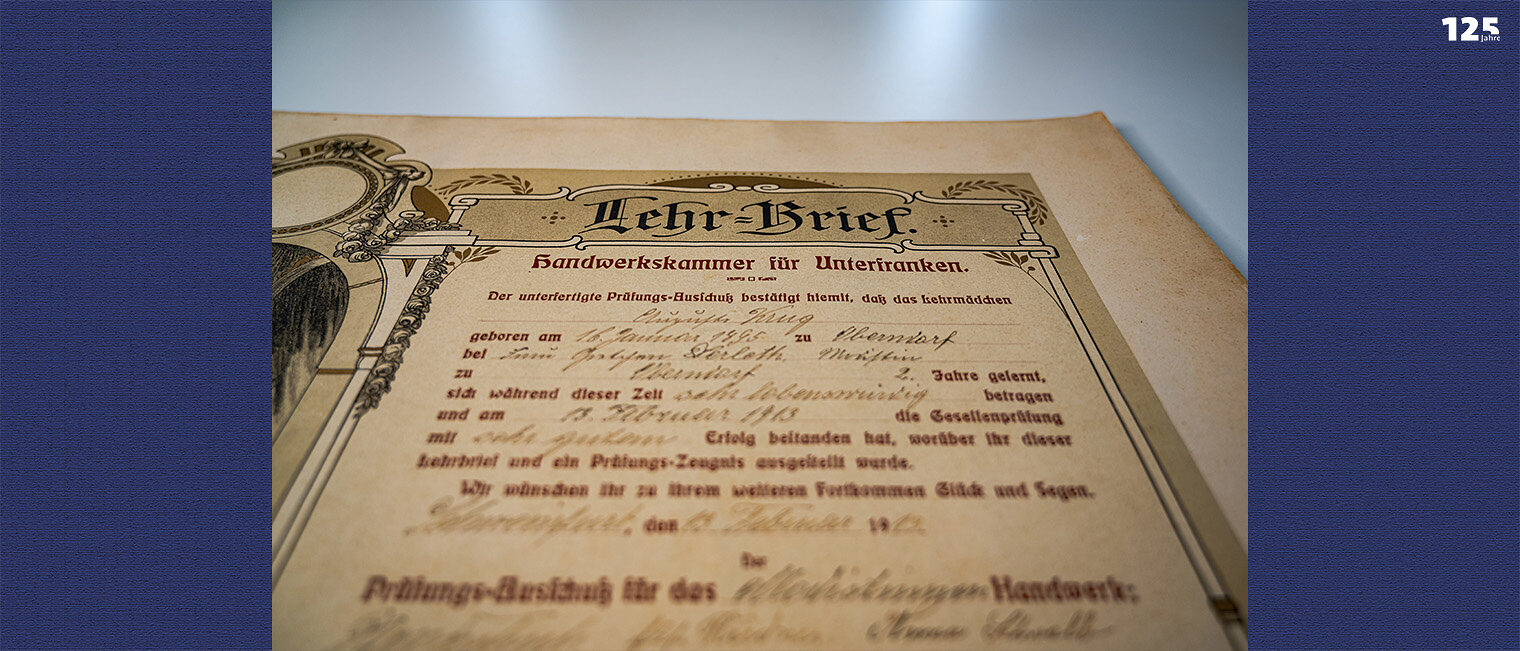 125
Jahre
Lehr=Brief.
Handwerkskammer für Unterfranken.
Der unterfertigte Prüfungs-Ausschuß bestätigt hiemit, daß das Lehrmädchen
Auguste Krug
geboren am 16. Januar 1895 zu Oberndorf
bei Frau Gretchen Derleth, Modistin
zu Oberndorf 2. Jahre gelernt,
sich während dieser Zeit sehr lobenswürdig betragen
und am 13. Februar 1913 die Gesellenprüfung
mit sehr gutem Erfolg bestanden hat, worüber ihr dieser
Lehrbrief und ein Prüfungs-Zeugnis ausgestellt wurde.
Wir wünschen ihr zu ihrem weiteren Fortkommen Glück und Segen.
Schweinfurt, den 13. Februar 1913.
Der
Prüfungs-Ausschuß für das Handwerk:
Anna